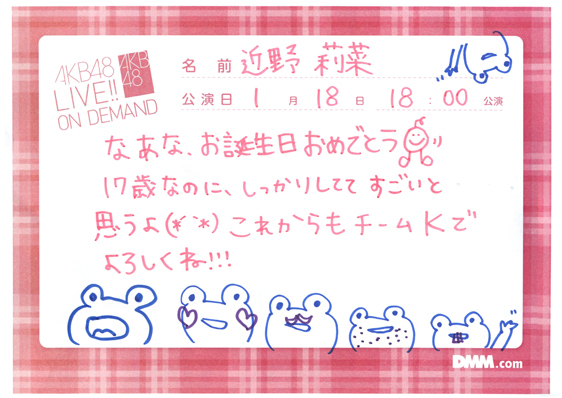 AKB48
LIVE!!
ON DEMAND
AKB
48
名前 近野 莉菜
公演日 1月18日 18:00 公演
なあな、お誕生日おめでとう
17歳なのに、しっかりしてて すごいと
思うよ(*´`*)これからもチームKで
よろしくね!!!
DMM.com